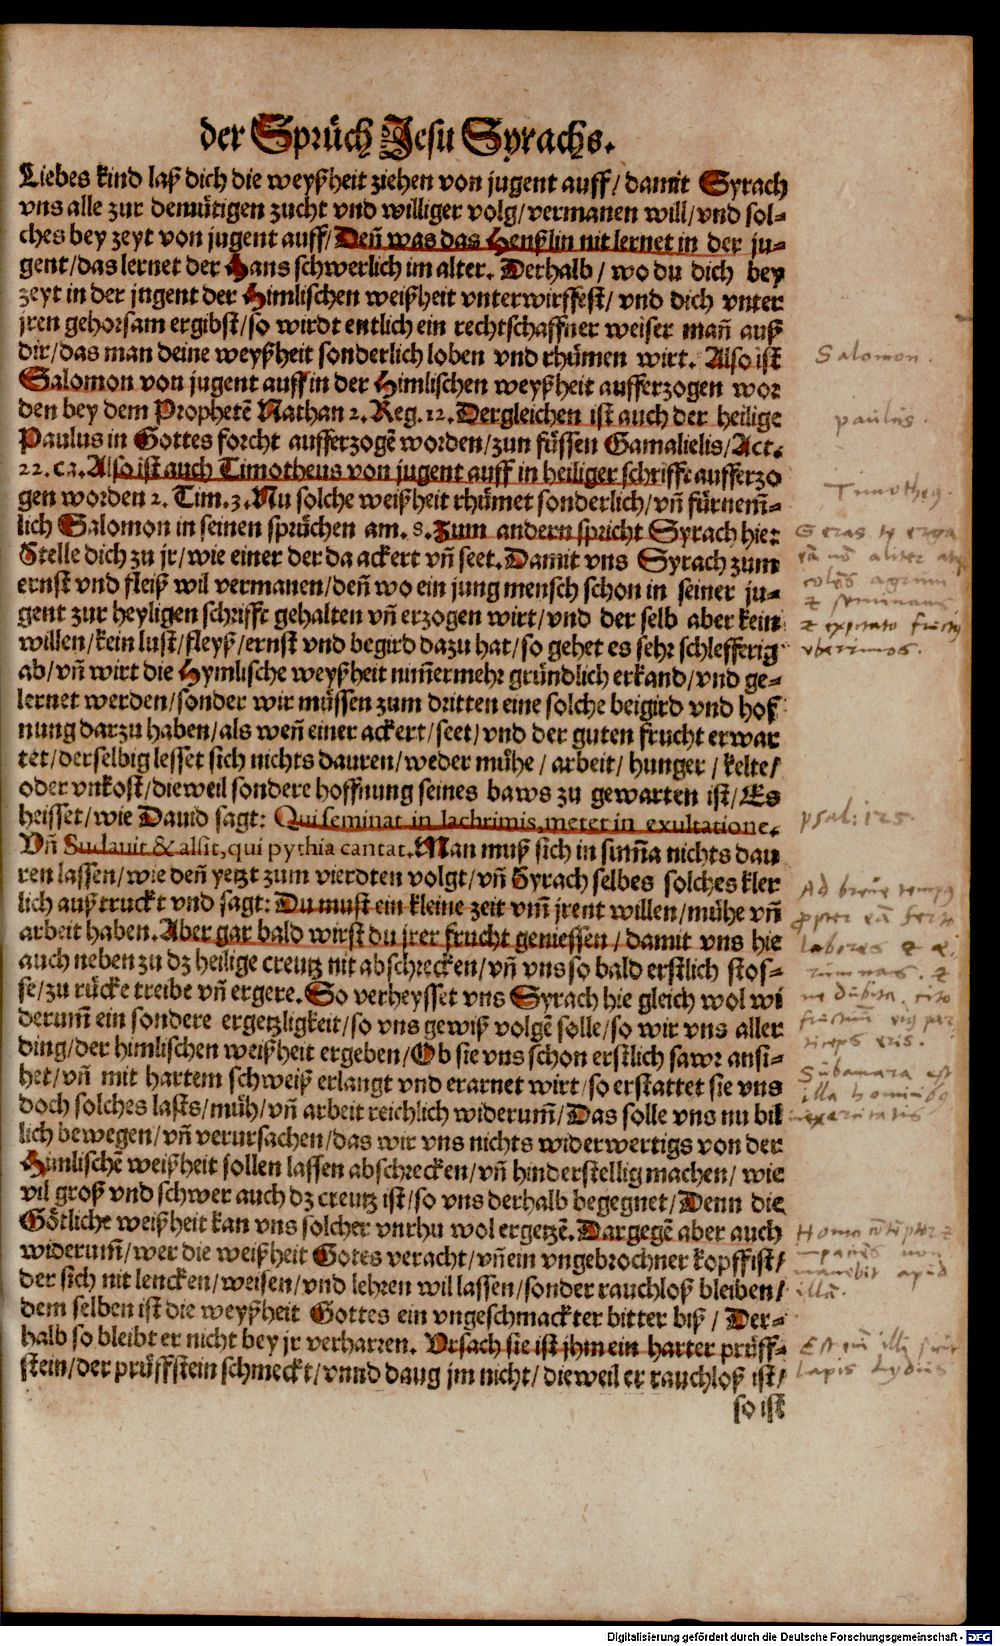 der Sprüch Jesu Syrachs.
Liebes kind laß dich die weyßheit ziehen von jugent auff/ damit Syrach
vns alle zur demütigen zucht vnd williger volg/ vermanen will/ vnd sol-
ches bey zeyt von jugent auff/ Deñ was das Henßlin nit lernet in der ju-
gent/ das lernet der Hans schwerlich im alter. Derhalb/ wo du dich bey
zeyt in der jngent der Himlischen weißheit vnterwirffest/ vnd dich vnter
jren gehorsam ergibst/ so wirdt entlich ein rechtschaffner weiser mañ auß
dir/ das man deine weyßheit sonderlich loben vnd rhümen wirt. Also ist
Salomon von jugent auff in der Himlischen weyßheit aufferzogen wor
den bey dem Prophetẽ Nathan 2. Reg. 12. Dergleichen ist auch der heilige
Paulus in Gottes forcht aufferzogẽ worden/ zun füssen Gamalielis/ Act.
22. c.3. Also ist auch Timotheus von jugent auff in heiliger schrifft aufferzo
gen worden 2. Tim. 3. Nu solche weißheit rhümet sonderlich/ vñ fürnem̃-
lich Salomon in seinen sprüchen am. 8. Zum andern spricht Syrach hie:
Stelle dich zu jr/ wie einer der da ackert vñ seet. Damit vns Syrach zum
ernst vnd fleiß wil vermanen/ deñ wo ein jung mensch schon in seiner ju-
gent zur heyligen schrifft gehalten vñ erzogen wirt/ vnd der selb aber kein
willen/ kein lust/ fleyß/ ernst vnd begird dazu hat/ so gehet es sehr schlefferig
ab/ vñ wirt die Hymlische weyßheit nim̃ermehr gründlich erkand/ vnd ge-
lernet werden/ sonder wir müssen zum dritten eine solche beigird vnd hof
nung darzu haben/ als weñ einer ackert/ seet/ vnd der guten frucht erwar
tet/ derselbig lesset sich nichts dauren/ weder mühe/ arbeit/ hunger/ kelte/
oder vnkost/ dieweil sondere hoffnung seines baws zu gewarten ist/ Es
heisset/ wie Dauid sagt: Qui seminat in lachrimis, meter in exultatione.
Vñ Sudauit & alsit, qui pythia cantat. Man muß sich in sum̃a nichts dau
ren lassen/ wie deñ yetzt zum vierdten volgt/ vñ Syrach selbes solches kler
lich auß truckt vnd sagt: Du must ein kleine zeit vm̃ jrent willen/ mühe vñ
arbeit haben. Aber gar bald wirst du jrer frucht geniessen/ damit vns hie
auch neben zu dz heilige creutz nit abschrecken/ vñ vns so bald erstlich stos-
se/ zu rücke treibe vñ ergere. So verheysset vns Syrach hie gleich wol wi
derum̃ ein sondere ergetzligkeit/ so vns gewiß volgẽ solle/ so wir vns aller
ding/ der himlischen weißheit ergeben/ Ob sie vns schon erstlich sawr ansi-
het/ vñ mit hartem schweiß erlangt vnd erarnet wirt/ so erstattet sie vns
doch solches lasts/ müh/ vñ arbeit reichlich widerum̃/ Das solle vns nu bil
lich bewegen/ vñ verursachen/ das wir vns nichts widerwertigs von der
Himlischẽ weißheit sollen lassen abschrecken/ vñ hinderstellig machen/ wie
vil groß vnd schwer auch dz creutz ist/ so vns derhalb begegnet/ Denn die
Götliche weißheit kan vns solcher vnrhu wol ergetzẽ. Dargegẽ aber auch
widerum̃/ wer die weißheit Gotes veracht/ vñ ein vngebrochner kopff ist/
der sich nit lencken/ weisen/ vnd lehren wil lassen/ sonder rauchloß bleiben/
dem selben ist die weyßheit Gottes ein vngeschmackter bitter biß/ Der-
halb so bleibt er nicht bey jr verharren. Vrsach sie ist jhm ein harter prüff-
stein/ der prüffstein schmeckt/ vnnd daug jm nicht/ dieweil er rauchloß ist/
so ist
Salomon.
paulus.
Timotheg.
Geras te erga
eā nō aliter atq
colēs agrum
& seminans
& expectato fructus
vberrimos.
psal: 125.
Ad breve tempg
propter eā ferto
labores & æ-
rumnas. &
ne dubita. cito
fructuum eig par-
ticeps eris.
Subamara est
illa hominibg
inexercitatis
Homo
non
manebit apud
illā.
Est illi sicut
lapis Lydius
Digitalisierung gefördert durch die Deutsche Forschungsgemeinschaft - DFG